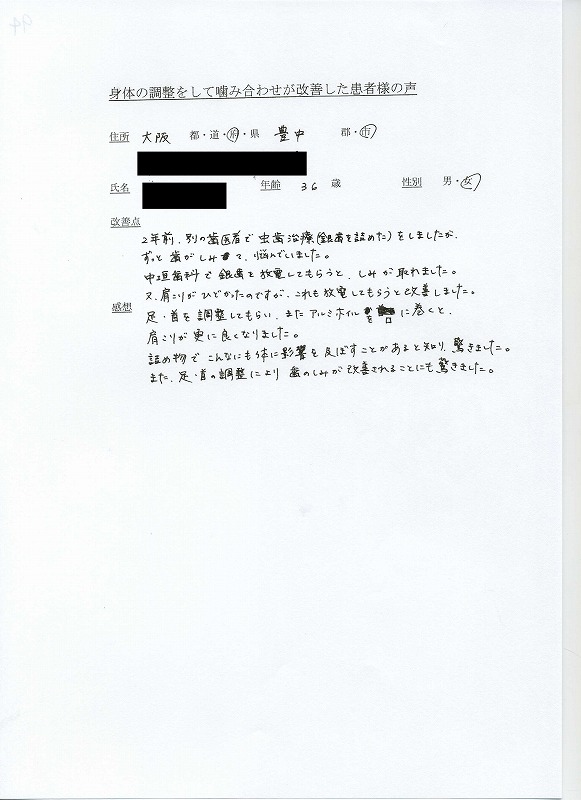 身体の調整をして噛み合わせが改善した患者様の声
住所 大阪 都・道・府・県 豊中 郡・市
氏名 年齢 36 歳 性別 男・女
改善点
2年前、別の歯医者で虫歯治療(銀歯を詰めた)をしましたが、
ずっと歯がしみて、悩んでいました。
中垣歯科で銀歯を放電してもらうと、しみが取れました。
又、肩こりがひどかったのですが、これも放電してもらうと改善しました。
感想
足・首を調整してもらい、またアルミホイルを に巻くと、
肩こりが更に良くなりました。
詰め物でこんなにも体に影響を及ぼすことがあると知り、驚きました。
また、足・首の調整により歯のしみが改善されることにも驚きました。